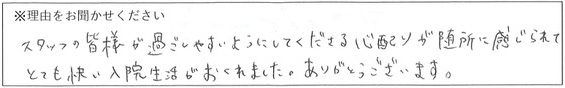 ※理由をお聞かせください
スタッフの皆様が過ごしやすいようにしてくださる心配りが随所に感じられて
とても快い入院生活がおくれました。ありがとうございます。